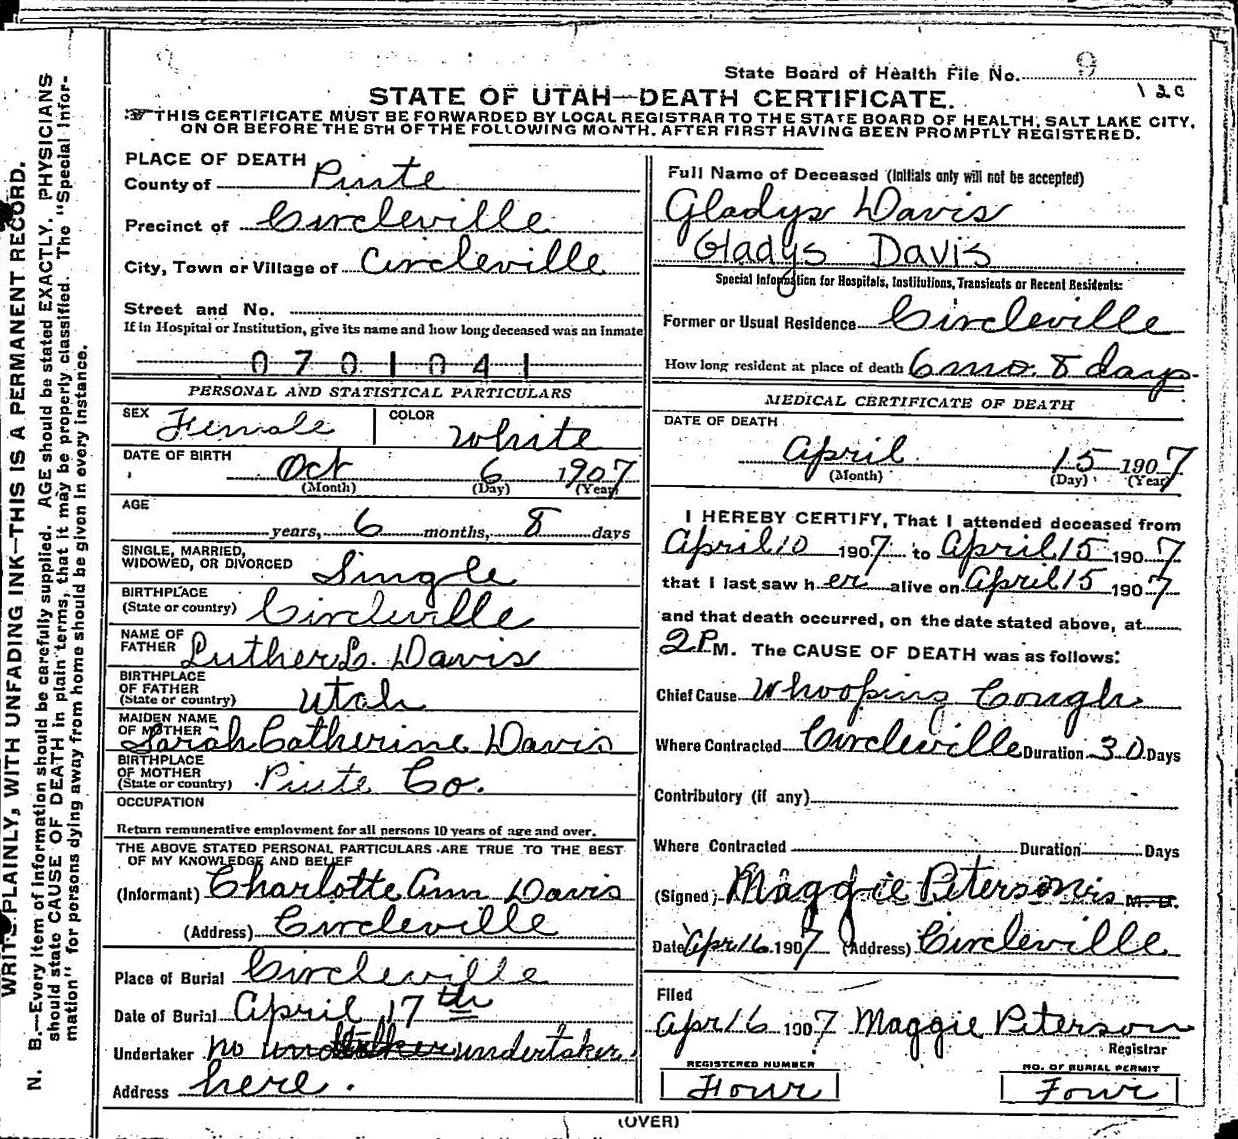 State Board of Health File No. 9
120
STATE OF UTAH—DEATH CERTIFICATE.
THIS CERTIFICATE MUST BE FORWARDED BY LOCAL REGISTRAR TO THE STATE BOARD OF HEALTH, SALT LAKE CITY,
ON OR BEFORE THE 5TH OF THE FOLLOWING MONTH. AFTER FIRST HAVING BEEN PROMPTLY REGISTERED.
WRITE PLAINLY, WITH UNFADING INK—THIS IS A PERMANENT RECORD.
N. B.—Every item of information should be carefully supplied. AGE should be stated EXACTLY. PHYSICIANS
should state CAUSE OF DEATH in plain terms, that it may be properly classified. The "Special Infor-
mation" for persons dying away from home should be given in every instance.
PLACE OF DEATH
County of Piute
Precinct of Circleville
City, Town or Village of Circleville
Street and No.
If in Hospital or Institution, give its name and how long deceased was an inmate
0701041
PERSONAL AND STATISTICAL PARTICULARS
SEX Female COLOR White
DATE OF BIRTH
Oct 6 1907
(Month) (Day) (Year)
AGE
years, 6 months, 8 days
SINGLE, MARRIED,
WIDOWED, OR DIVORCED Single
BIRTHPLACE
(State or country) Circleville
NAME OF
FATHER Luther L. Davis
BIRTHPLACE
OF FATHER
(State or country) Utah
MAIDEN NAME
OF MOTHER Sarah Catherine Davis
BIRTHPLACE
OF MOTHER
(State or country) Piute Co.
OCCUPATION
Return remunerative employment for all persons 10 years of age and over.
THE ABOVE STATED PERSONAL PARTICULARS ARE TRUE TO THE BEST
OF MY KNOWLEDGE AND BELIEF
(Informant) Charlotte Ann Davis
(Address) Circleville
Place of Burial Circleville
Date of Burial April 17th
Undertaker no undertaker
Address here.
Full Name of Deceased (Initials only will not be accepted)
Gladys Davis
Gladys Davis
Special Information for Hospitals, Institutions, Transients or Recent Residents:
Former or Usual Residence Circleville
How long resident at place of death 6 mo. 8 days
MEDICAL CERTIFICATE OF DEATH
DATE OF DEATH
April 15 1907
(Month) (Day) (Year)
I HEREBY CERTIFY, That I attended deceased from
April 10 1907 to April 15 1907
that I last saw her alive on April 15 1907
and that death occurred, on the date stated above, at
2 P M. The CAUSE OF DEATH was as follows:
Chief Cause Whooping Cough
Where Contracted Circleville Duration 30 Days
Contributory (if any)
Where Contracted Duration Days
(Signed) Maggie Peterson M. D.
Date Apr 16 1907 (Address) Circleville
Filed
Apr 16 1907 Maggie Peterson
Registrar
REGISTERED NUMBER
Four
NO. OF BURIAL PERMIT
Four
(OVER)